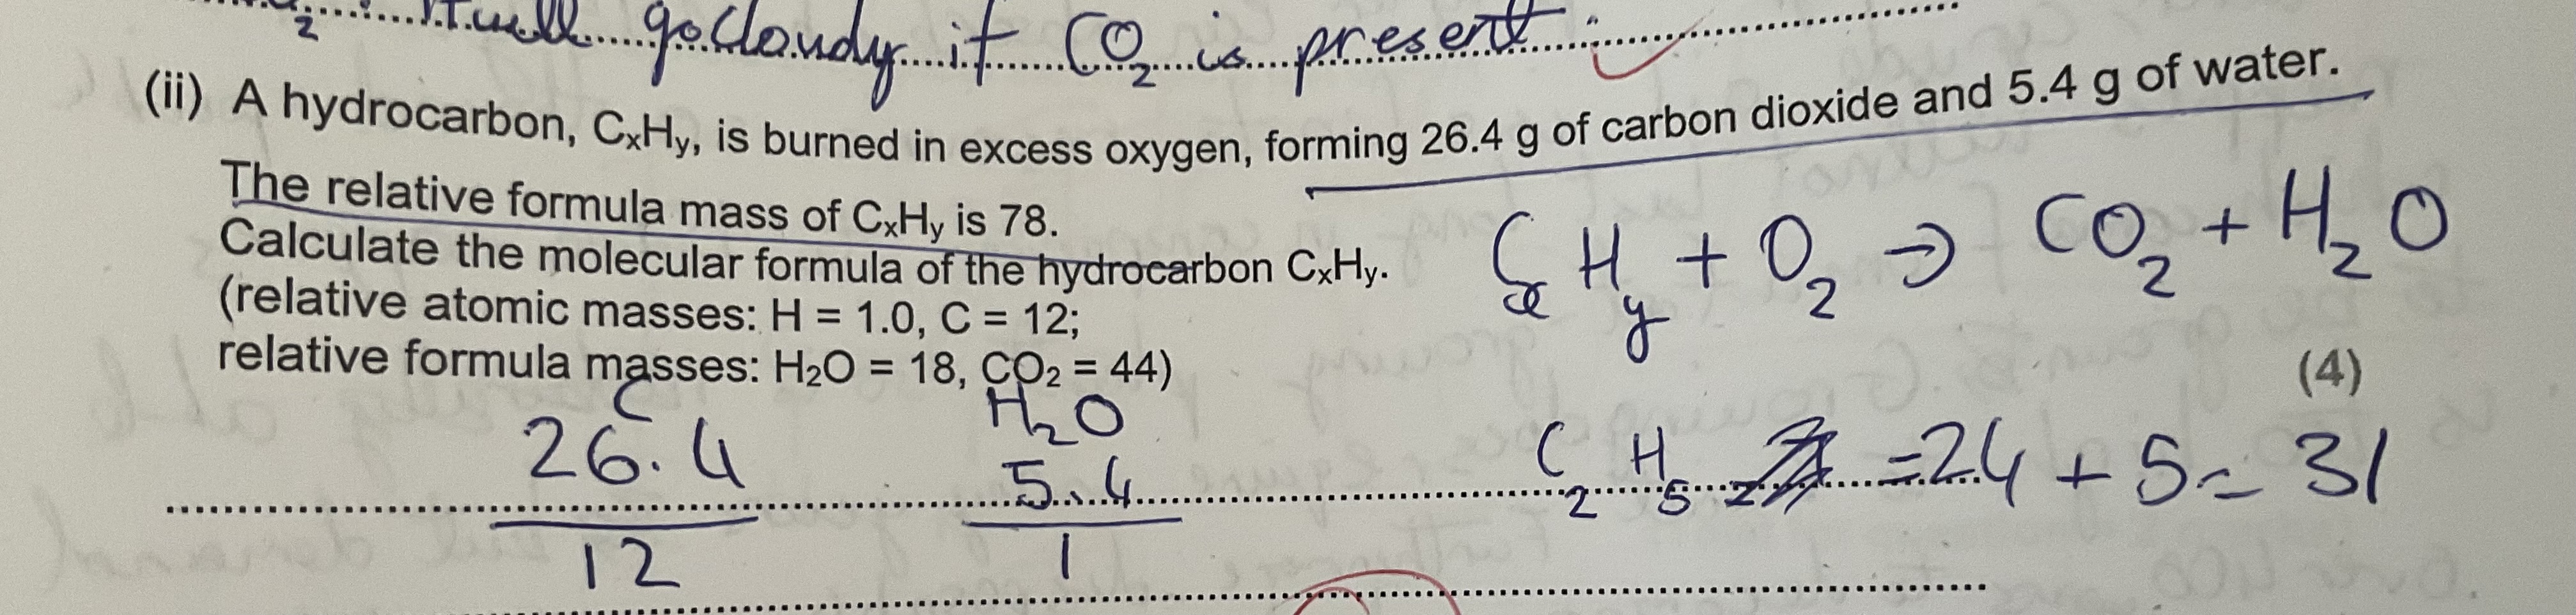 2 : It will go Cloudy if CO2 is present.
(ii) A hydrocarbon, CxHy, is burned in excess oxygen, forming 26.4 g of carbon dioxide and 5.4 g of water.
The relative formula mass of CxHy is 78.
Calculate the molecular formula of the hydrocarbon CxHy.
(relative atomic masses: H = 1.0, C = 12;
relative formula masses: H2O = 18, CO2 = 44)
CxHy + O2 → CO2 + H2O
(4)
C H2O
26.4 5.4
12 1
C2H5 = 24 + 5 = 31